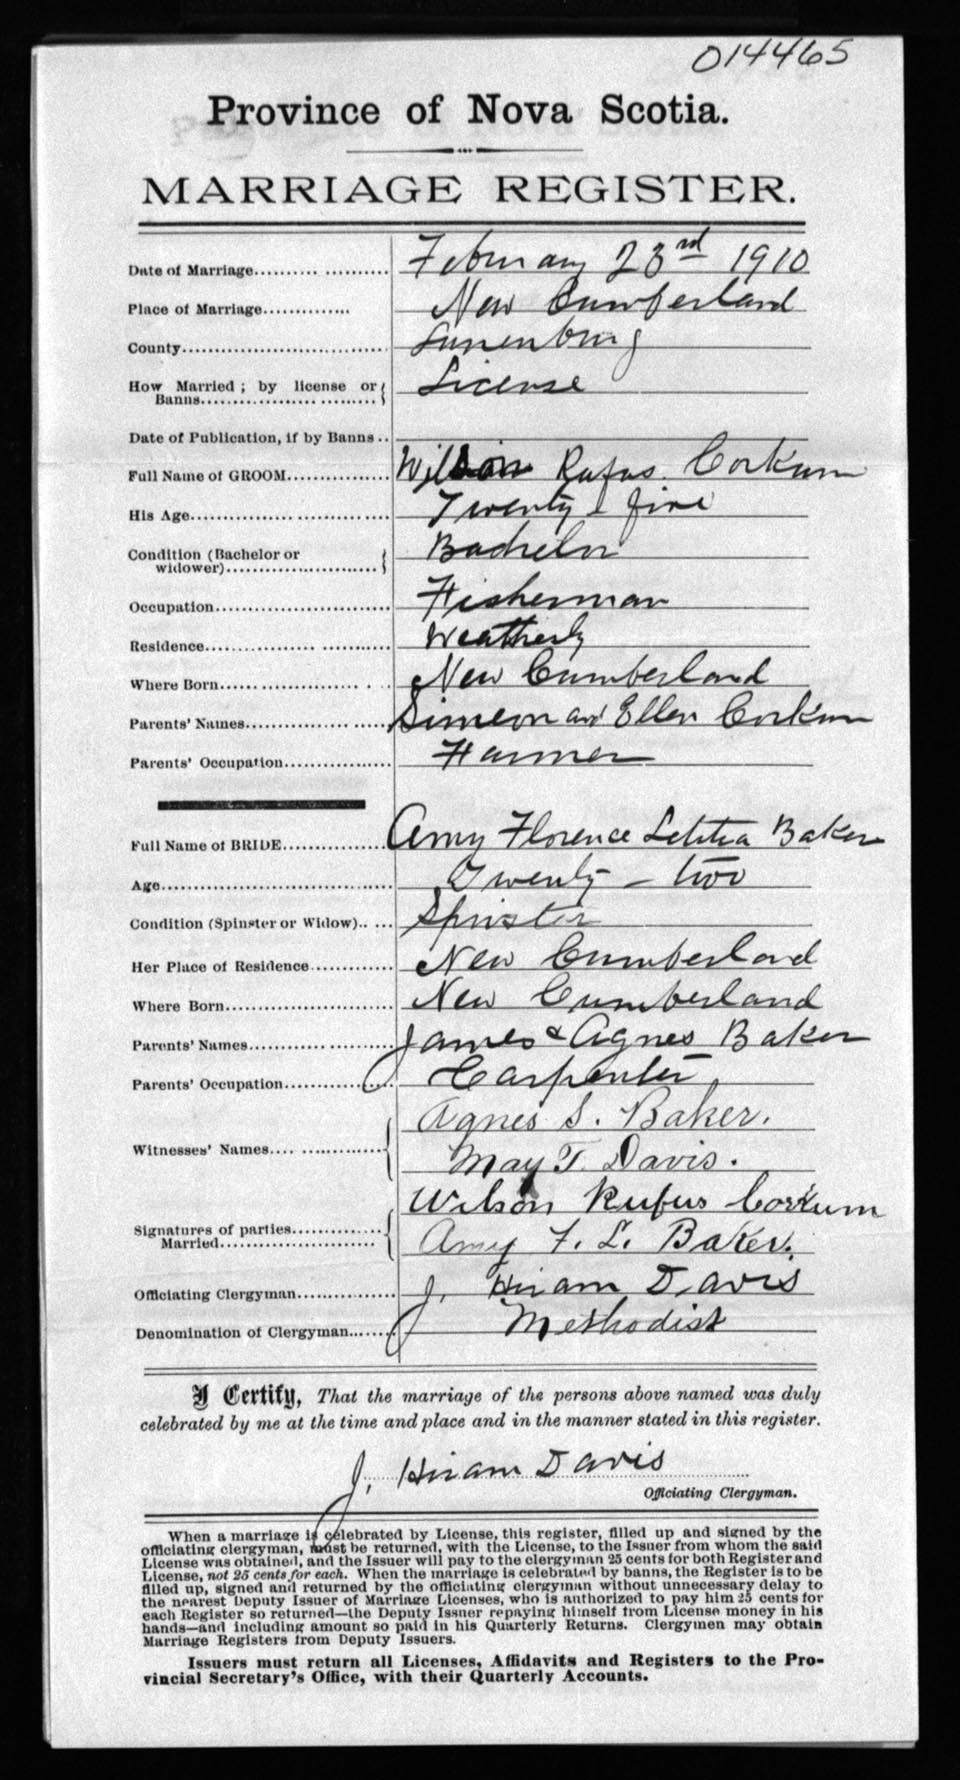 014465
Province of Nova Scotia.
MARRIAGE REGISTER.
Date of Marriage.......... ........... February 23rd 1910
Place of Marriage.............. New Cumberland
County................................ Lunenburg
How Married ; by license or
Banns.................... ......... License
Date of Publication, if by Banns ..
Full Name of GROOM................ Wilson Rufus Corkum
His Age............................... Twenty - five
Condition (Bachelor or
widower).......................... Bachelor
Occupation............................ Fisherman
Residence................ ............ Weatherly
Where Born..................... . . New Cumberland
Parents' Names.............. ........ Simeon and Ellen Corkum
Parents' Occupation.................. Farmer
Full Name of BRIDE.................. Amy Florence Letitia Baker
Age.................................... Twenty - two
Condition (Spinster or Widow).. ... Spinster
Her Place of Residence.............. New Cumberland
Where Born............................ New Cumberland
Parents' Names............. .......... James & Agnes Baker
Parents' Occupation.................. Carpenter
Agnes S. Baker.
Witnesses' Names.... ..............
May T. Davis.
Wilson Rufus Corkum
Signatures of parties...............
Married........................... Amy F. L. Baker.
Officiating Clergyman................ J. Hiram Davis
Denomination of Clergyman........ Methodist
I Certify, That the marriage of the persons above named was duly
celebrated by me at the time and place and in the manner stated in this register.
J. Hiram Davis
Officiating Clergyman.
When a marriage is celebrated by License, this register, filled up and signed by the
officiating clergyman, must be returned, with the License, to the Issuer from whom the said
License was obtained, and the Issuer will pay to the clergyman 25 cents for both Register and
License, not 25 cents for each. When the marriage is celebrated by banns, the Register is to be
filled up, signed and returned by the officiating clergyman without unnecessary delay to
the nearest Deputy Issuer of Marriage Licenses, who is authorized to pay him 25 cents for
each Register so returned—the Deputy Issuer repaying himself from License money in his
hands—and including amount so paid in his Quarterly Returns. Clergymen may obtain
Marriage Registers from Deputy Issuers.
Issuers must return all Licenses, Affidavits and Registers to the Pro-
vincial Secretary's Office, with their Quarterly Accounts.